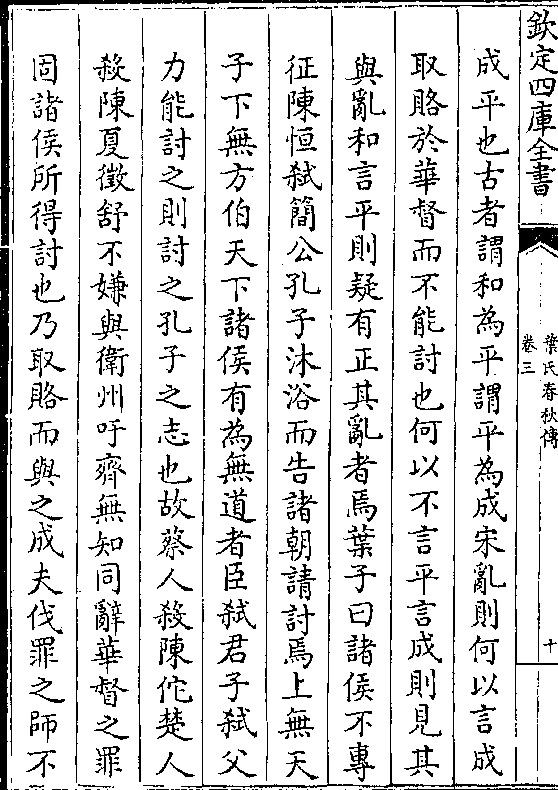 欽定四庫全書
葉氏春秋傳
卷三
十
成平也古者謂和為平謂平為成宋亂則何以言成
取賂於華督而不能討也何以不言平言成則見其
與亂和言平則疑有正其亂者焉葉子曰諸侯不專
征陳恒弑簡公孔子沐浴而告諸朝請討焉上無天
子下無方伯天下諸侯有為無道者臣弑君子弑父
力能討之則討之孔子之志也故蔡人殺陳佗楚人
殺陳夏徵舒不嫌與衛州吁齊無知同辭華督之罪
固諸侯所得討也乃取賂而與之成夫伐罪之師不